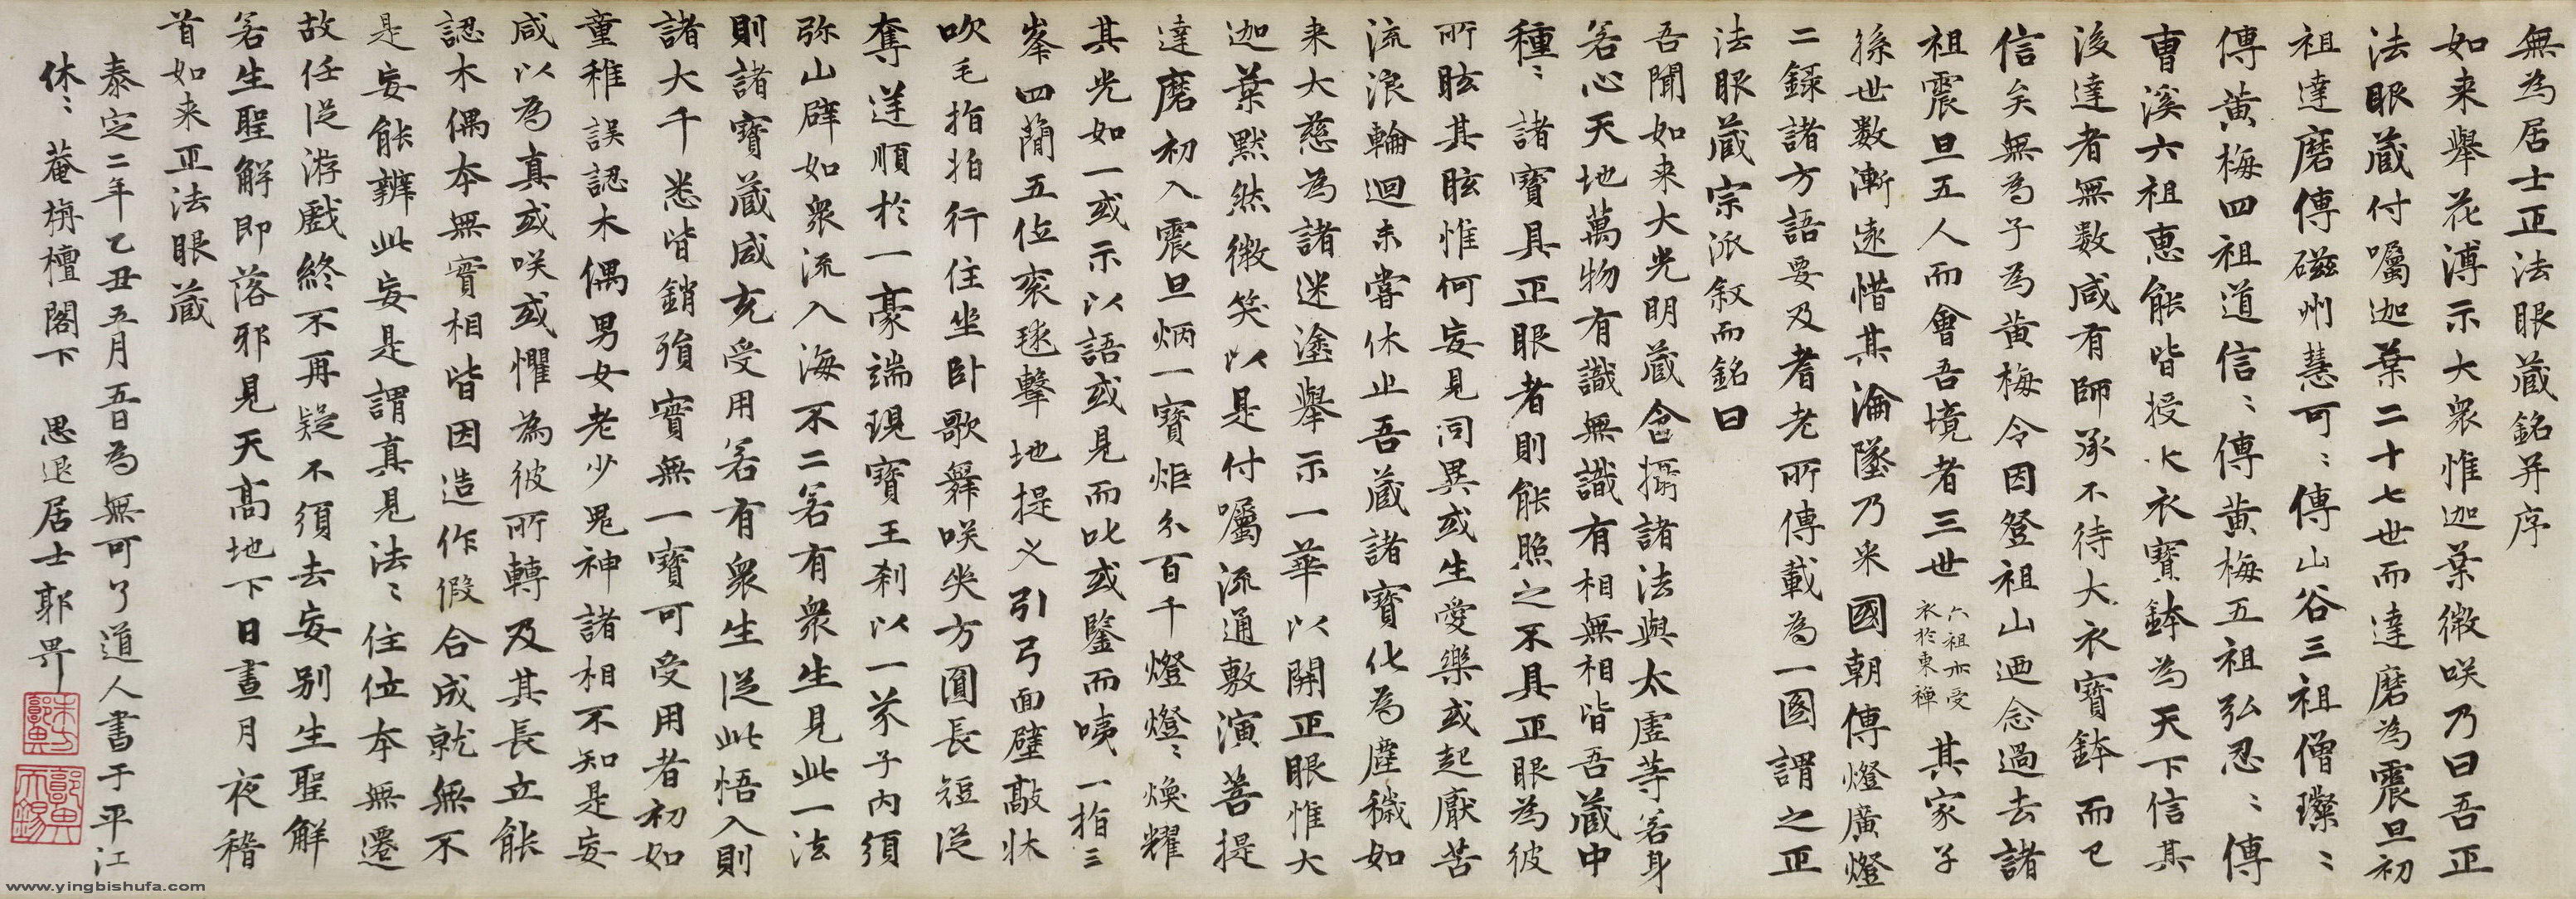 無為居士正法眼藏銘并序
如来舉花溥示大衆惟迦葉微咲乃曰吾正
法眼藏付囑迦葉二十七世而達磨為震旦初
祖達磨傳磁州慧可〻傳山谷三祖僧璨〻
傳黄梅四祖道信〻傳黄梅五祖弘忍〻傳
曹溪六祖惠能皆授大衣寶鉢為天下信其
後達者無数咸有師承不待大衣寶鉢而已
信矣無為子為黄梅令因登祖山迺念過去諸
祖震旦五人而會吾境者三世六祖亦受衣於東禅其家子
孫世数漸遠惜其淪墜乃采國朝傳燈廣燈
二録諸方語要及耆老所傳載為一圖謂之正
法眼藏宗派叙而銘曰
吾聞如来大光明藏含攝諸法與太虚等若身
若心天地萬物有識無識有相無相皆吾藏中
種〻諸寶具正眼者則能照之不具正眼為彼
所眩其眩惟何妄見同異或生愛樂或起厭苦
流浪輪迴未嘗休止吾藏諸寶化為塵穢如
来大慈為諸迷塗舉示一華以開正眼惟大
迦葉默然微笑以是付囑流通敷演菩提
達磨初入震旦炳一寶炬分百千燈燈〻焕耀
其光如一或示以語或見而叱或鑒而咦一指三
峯四蕳五位衮毬擊地提义引弓面壁敲牀
吹毛指拍行住坐卧歌舞咲哭方圓長短從
奪逆順於一豪端現寶王刹以一芥子内須
弥山辟如衆流入海不二若有衆生見此一法
則諸寶藏咸充受用若有衆生從此悟入則
諸大千悉皆銷殞實無一寶可受用者初如
童稚誤認木偶男女老少鬼神諸相不知是妄
咸以為真或咲或懼為彼所轉及其長立能
認木偶本無實相皆因造作假合成就無不
是妄能辨此妄是謂真見法〻住位本無遷
故任從游戲終不再疑不須去妄别生聖解
若生聖解即落邪見天高地下日晝月夜稽
首如来正法眼藏
泰定二年乙丑五月五日為無可了道人書于平江
休〻菴栴檀閣下　思退居士郭畀
www.yingbishufa.com